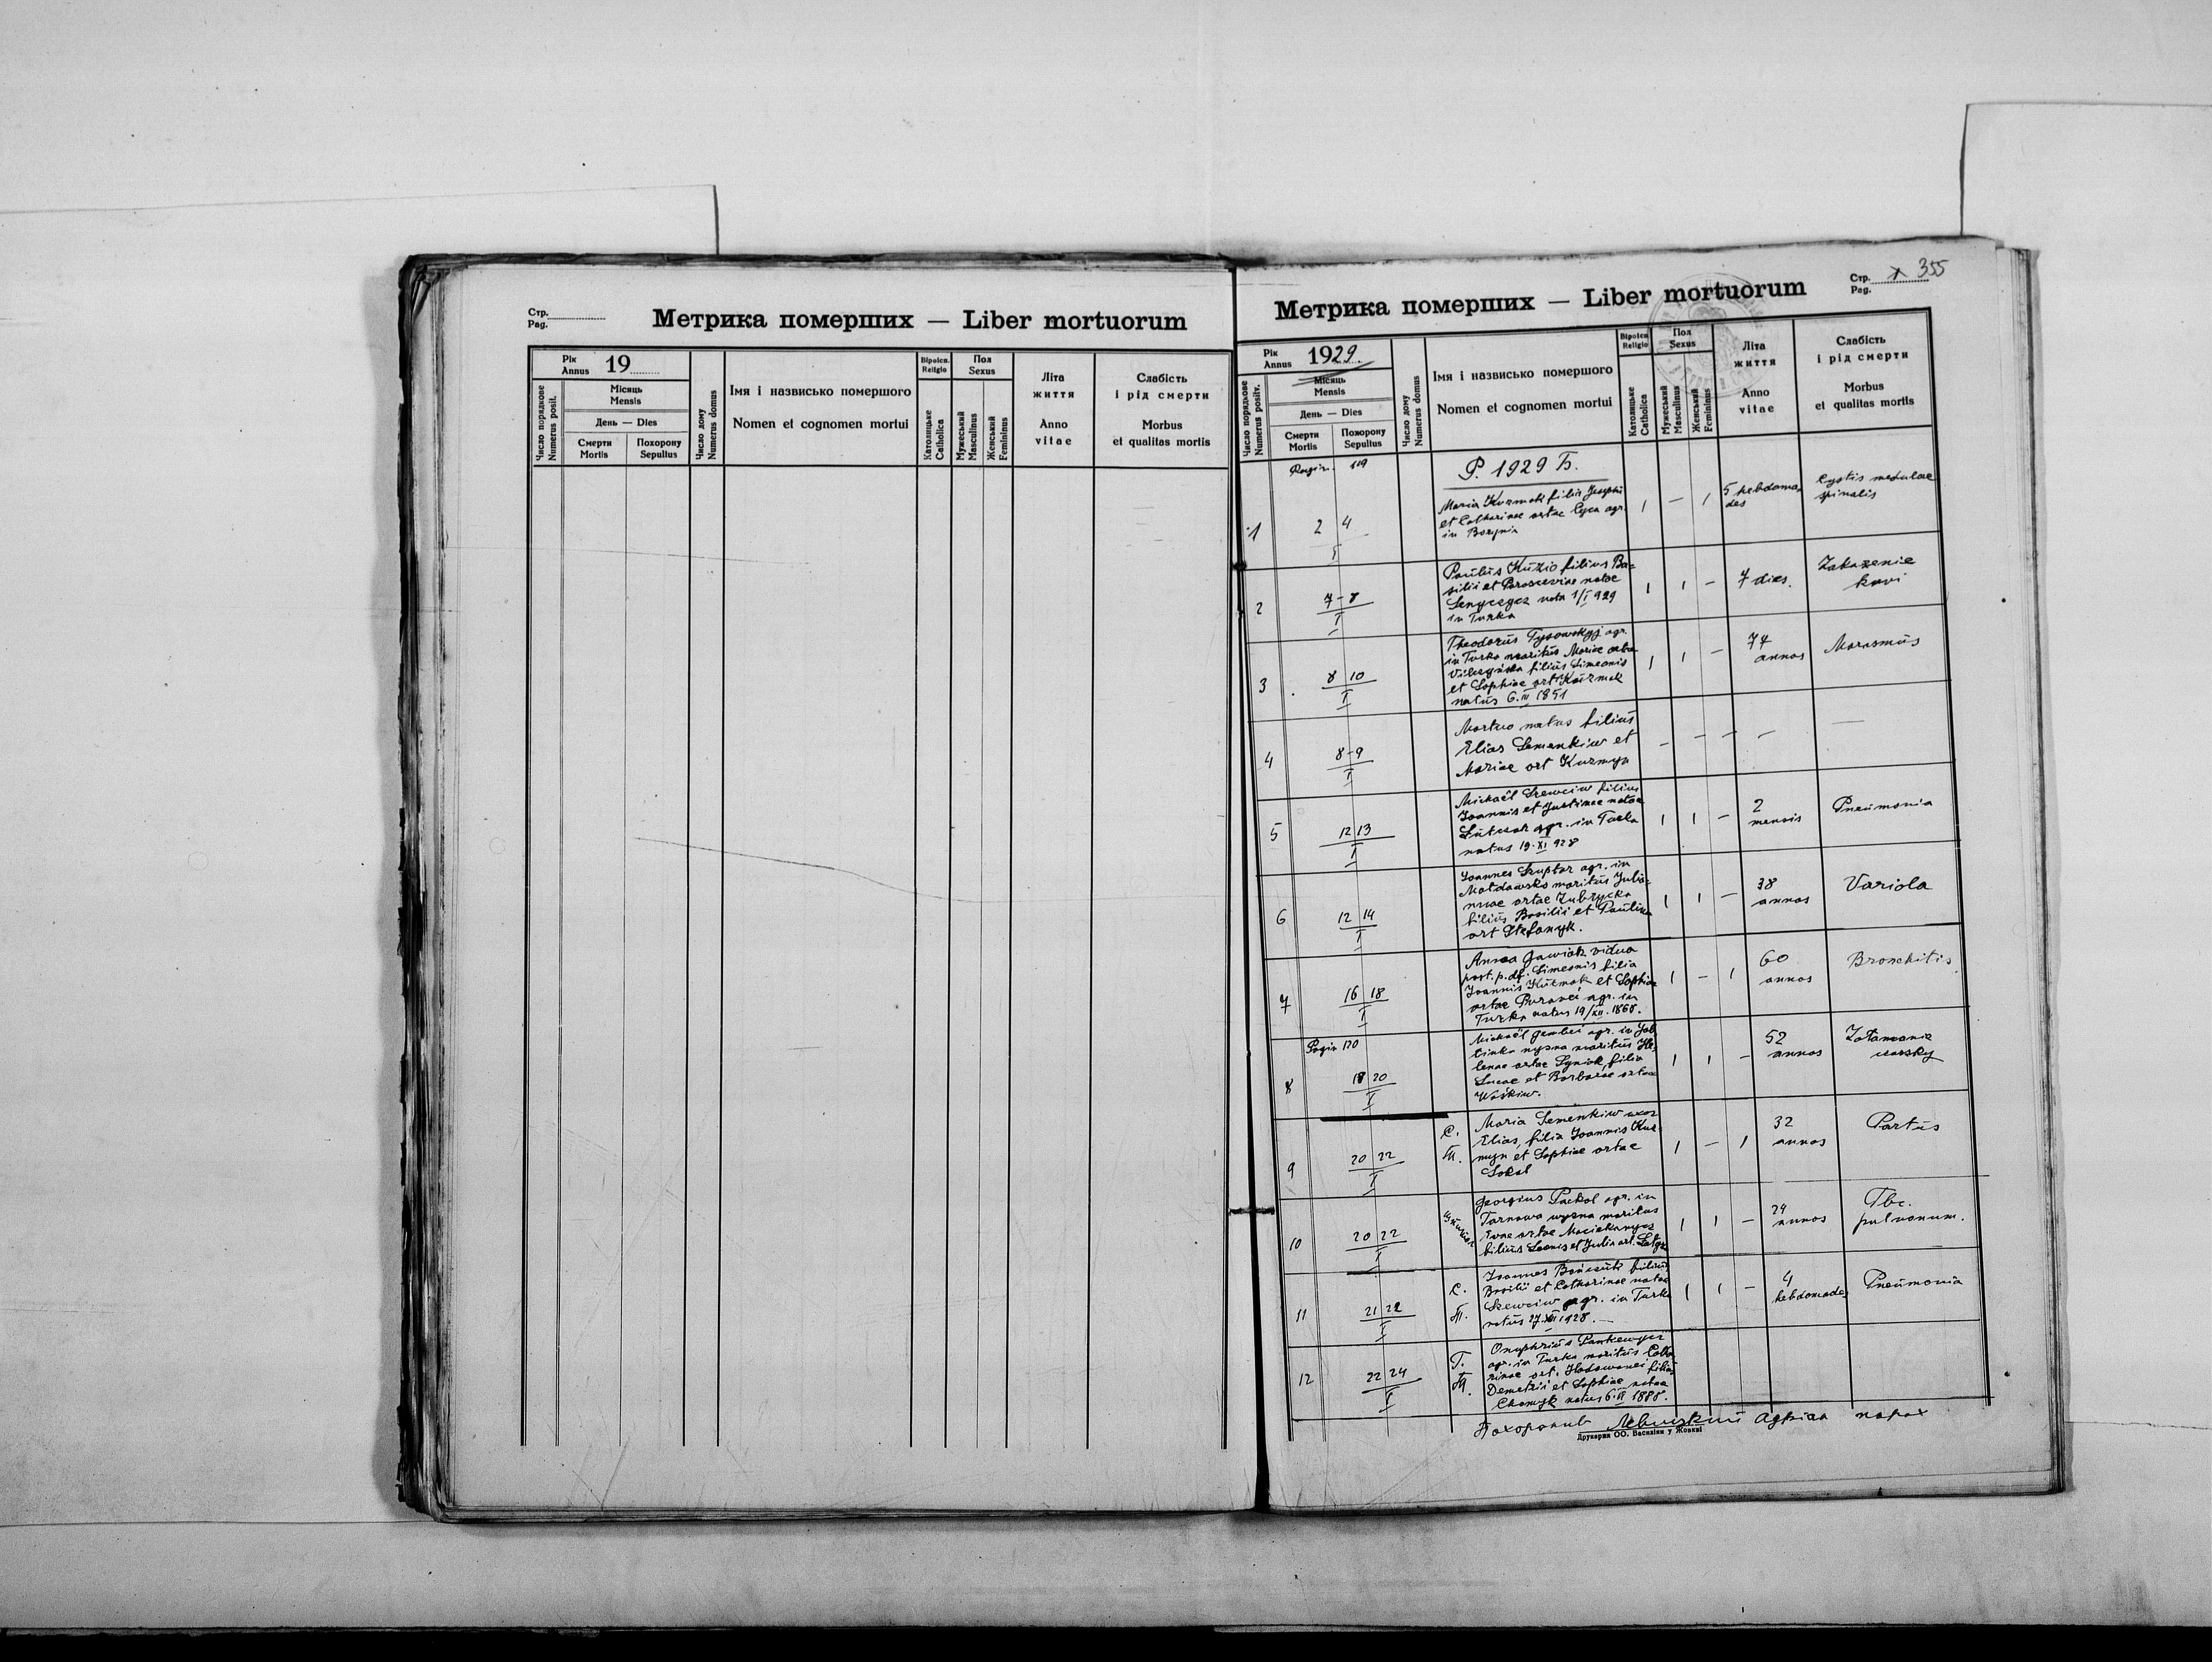 Стр.
Pag.
Метрика померших — Liber mortuorum
Рік
Annus 19
Місяць
Mensis
День — Dies
Смерти
Mortis
Похорону
Sepultus
Число порядкове
Numerus posit.
Число дому
Numerus domus
Імя і назвисько помершого
Nomen et cognomen mortui
Віроісп.
Religio
Католицьке
Catholica
Пол
Sexus
Мужеський
Masculinus
Женський
Femininus
Літа
життя
Anno
vitae
Слабість
і рід смерти
Morbus
et qualitas mortis
Стр.
Pag. 355
Метрика померших — Liber mortuorum
Рік
Annus 1929.
Місяць
Mensis
День — Dies
Смерти
Mortis
Похорону
Sepultus
Число порядкове
Numerus positv.
Число дому
Numerus domus
Імя і назвисько помершого
Nomen et cognomen mortui
Віроісп.
Religio
Католицьке
Catholica
Пол
Sexus
Мужеський
Masculinus
Женський
Femininus
Літа
життя
Anno
vitae
Слабість
і рід смерти
Morbus
et qualitas mortis
Pagin. 119
Р. 1929 Б.
1 2 4 I
Maria Kuzmak filia Josephi
et Catharinae ortae agr.
in Borynia
1 — 1
5 hebdoma
des
Cystis medulae
spinalis
2 7-8 I
Paulus Kuzio filius Ba=
silii et Parasceviae natae
nata 1/I 929
in Turka
1 1 —
7 dies.
Zakażenie
krwi
3 8 10 I
Theodorus agr.
in Turka maritus Mariae ortae
filius Simeonis
et Sophiae ort Kuzmak
natus 6.III 1851
1 1 —
74
annos
Marasmus
4 8-9 I
Mortuo natus filius
Elias Semenkiw et
Mariae ort Kuzmyn
— — — — —
5 12 13 I
Michaël Szewciw filius
Joannis et Justinae natae
agr. in Turka
natus 19.XI 928
1 1 —
2
mensis
Pneumonia
6 12 14 I
Joannes Szuptar agr. in
Mołdawsko maritus Julia-
nnae ortae Zubrycka
filius Basilii et Paulina
ort Stefanyk.
1 1 —
38
annos
Variola
7 16 18 I
Anna Jawiak vidua
post. p. df. Simeonis filia
Joannis Kuzmak et Sophiae
ortae agr. in
Turka natus 19/XII. 1868.
1 — 1
60
annos
Bronchitis
Pagin 120
8 18 20 I
Michaël agr. in Jab
łinka nyzna maritus He
lenae ortae filia
Lucae et Barbarae ortae
Waśkiw.
1 1 —
52
annos
Załamanie
czaszky
9 20 22 I
С.
Т.
Maria Semenkiw uxor
Elias, filia Joannis Kuz
myn et Sophiae ortae
Sokal
1 — 1
32
annos
Partus
10 20 22 I
Georgius agr. in
Tarnawa wyzna maritus
Evae ortae
filius et Julia ort.
1 1 —
24
annos
Tbc.
pulmonum.
11 21 22 I
С.
Т.
Joannes filius
Basilii et Catharinae natae
Szewciw agr. in Turka
natus 27.XII 1928. —
1 1 —
4
hebdomades
Pneumonia
12 22 24 I
Г.
Т.
Onuphrius Pankewycz
agr. in Turka maritus Catha
rinae ort. filius
Demetrii et Sophiae natae
Chomyk natus 1888.
Похоронив Левицкий Адріан парох
Друкарня ОО. Василіян у Жовкві